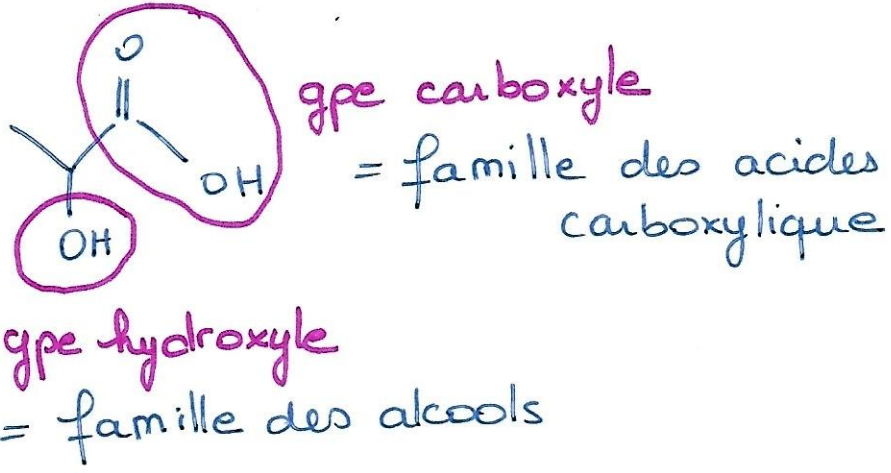 O
OH
gpe carboxyle
= famille des acides
carboxylique
OH
gpe hydroxyle
= famille des alcools